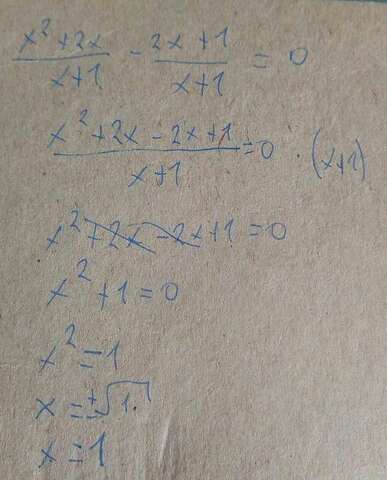 x²+2x/x+1 - 2x+1/x+1 = 0
x²+2x-2x+1/x+1 = 0 · (x+1)
x²+2x-2x+1=0
x²+1=0
x²=1
x=±√1
x=1